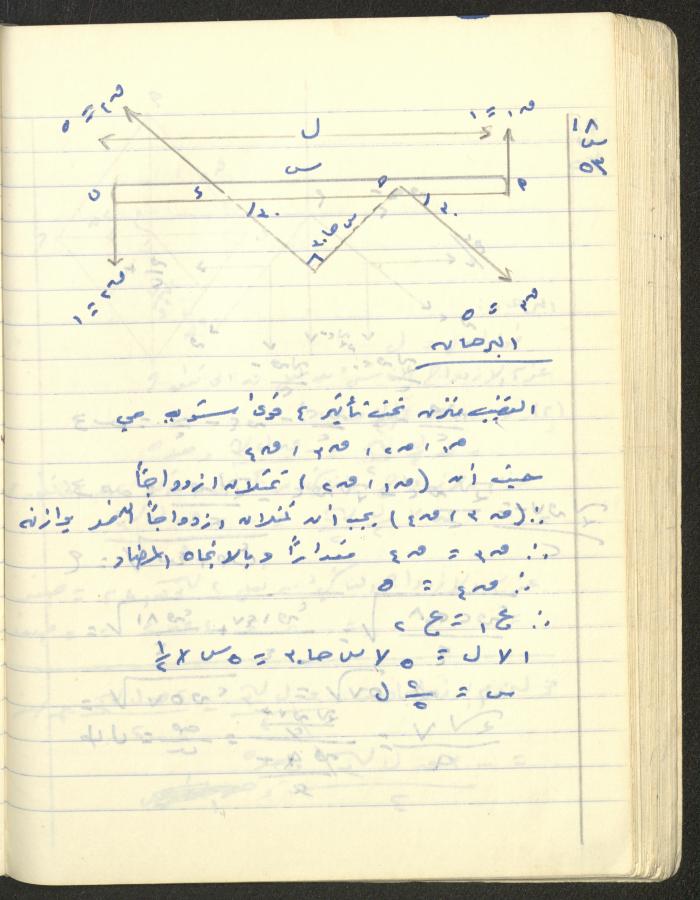 ١٨
ق١ = ١
ق٣ = ٥
ل
س
ب
٣٠
س حا٣٠
٣٠
ق٢ = ١
ق٤ = ٥
البرهان
القضيب متزن تحت تأثير ٤ قوى مستوية هي
ق١ ، ق٢ ، ق٣ ، ق٤
حيث أن (ق١ ، ق٢) تمثلان ازدواجاً
∴ (ق٣ ، ق٤) يجب أن تمثلان ازدواجاً آخر يوازنه
∴ ق٣ = ق٤ مقداراً وبالاتجاه المضاد
∴ ق٤ = ٥
∴ ع١ = ع٢
١ × ل = ٥ × س حا٣٠ = ٥ س × ١/٢
س = ٢/٥ ل